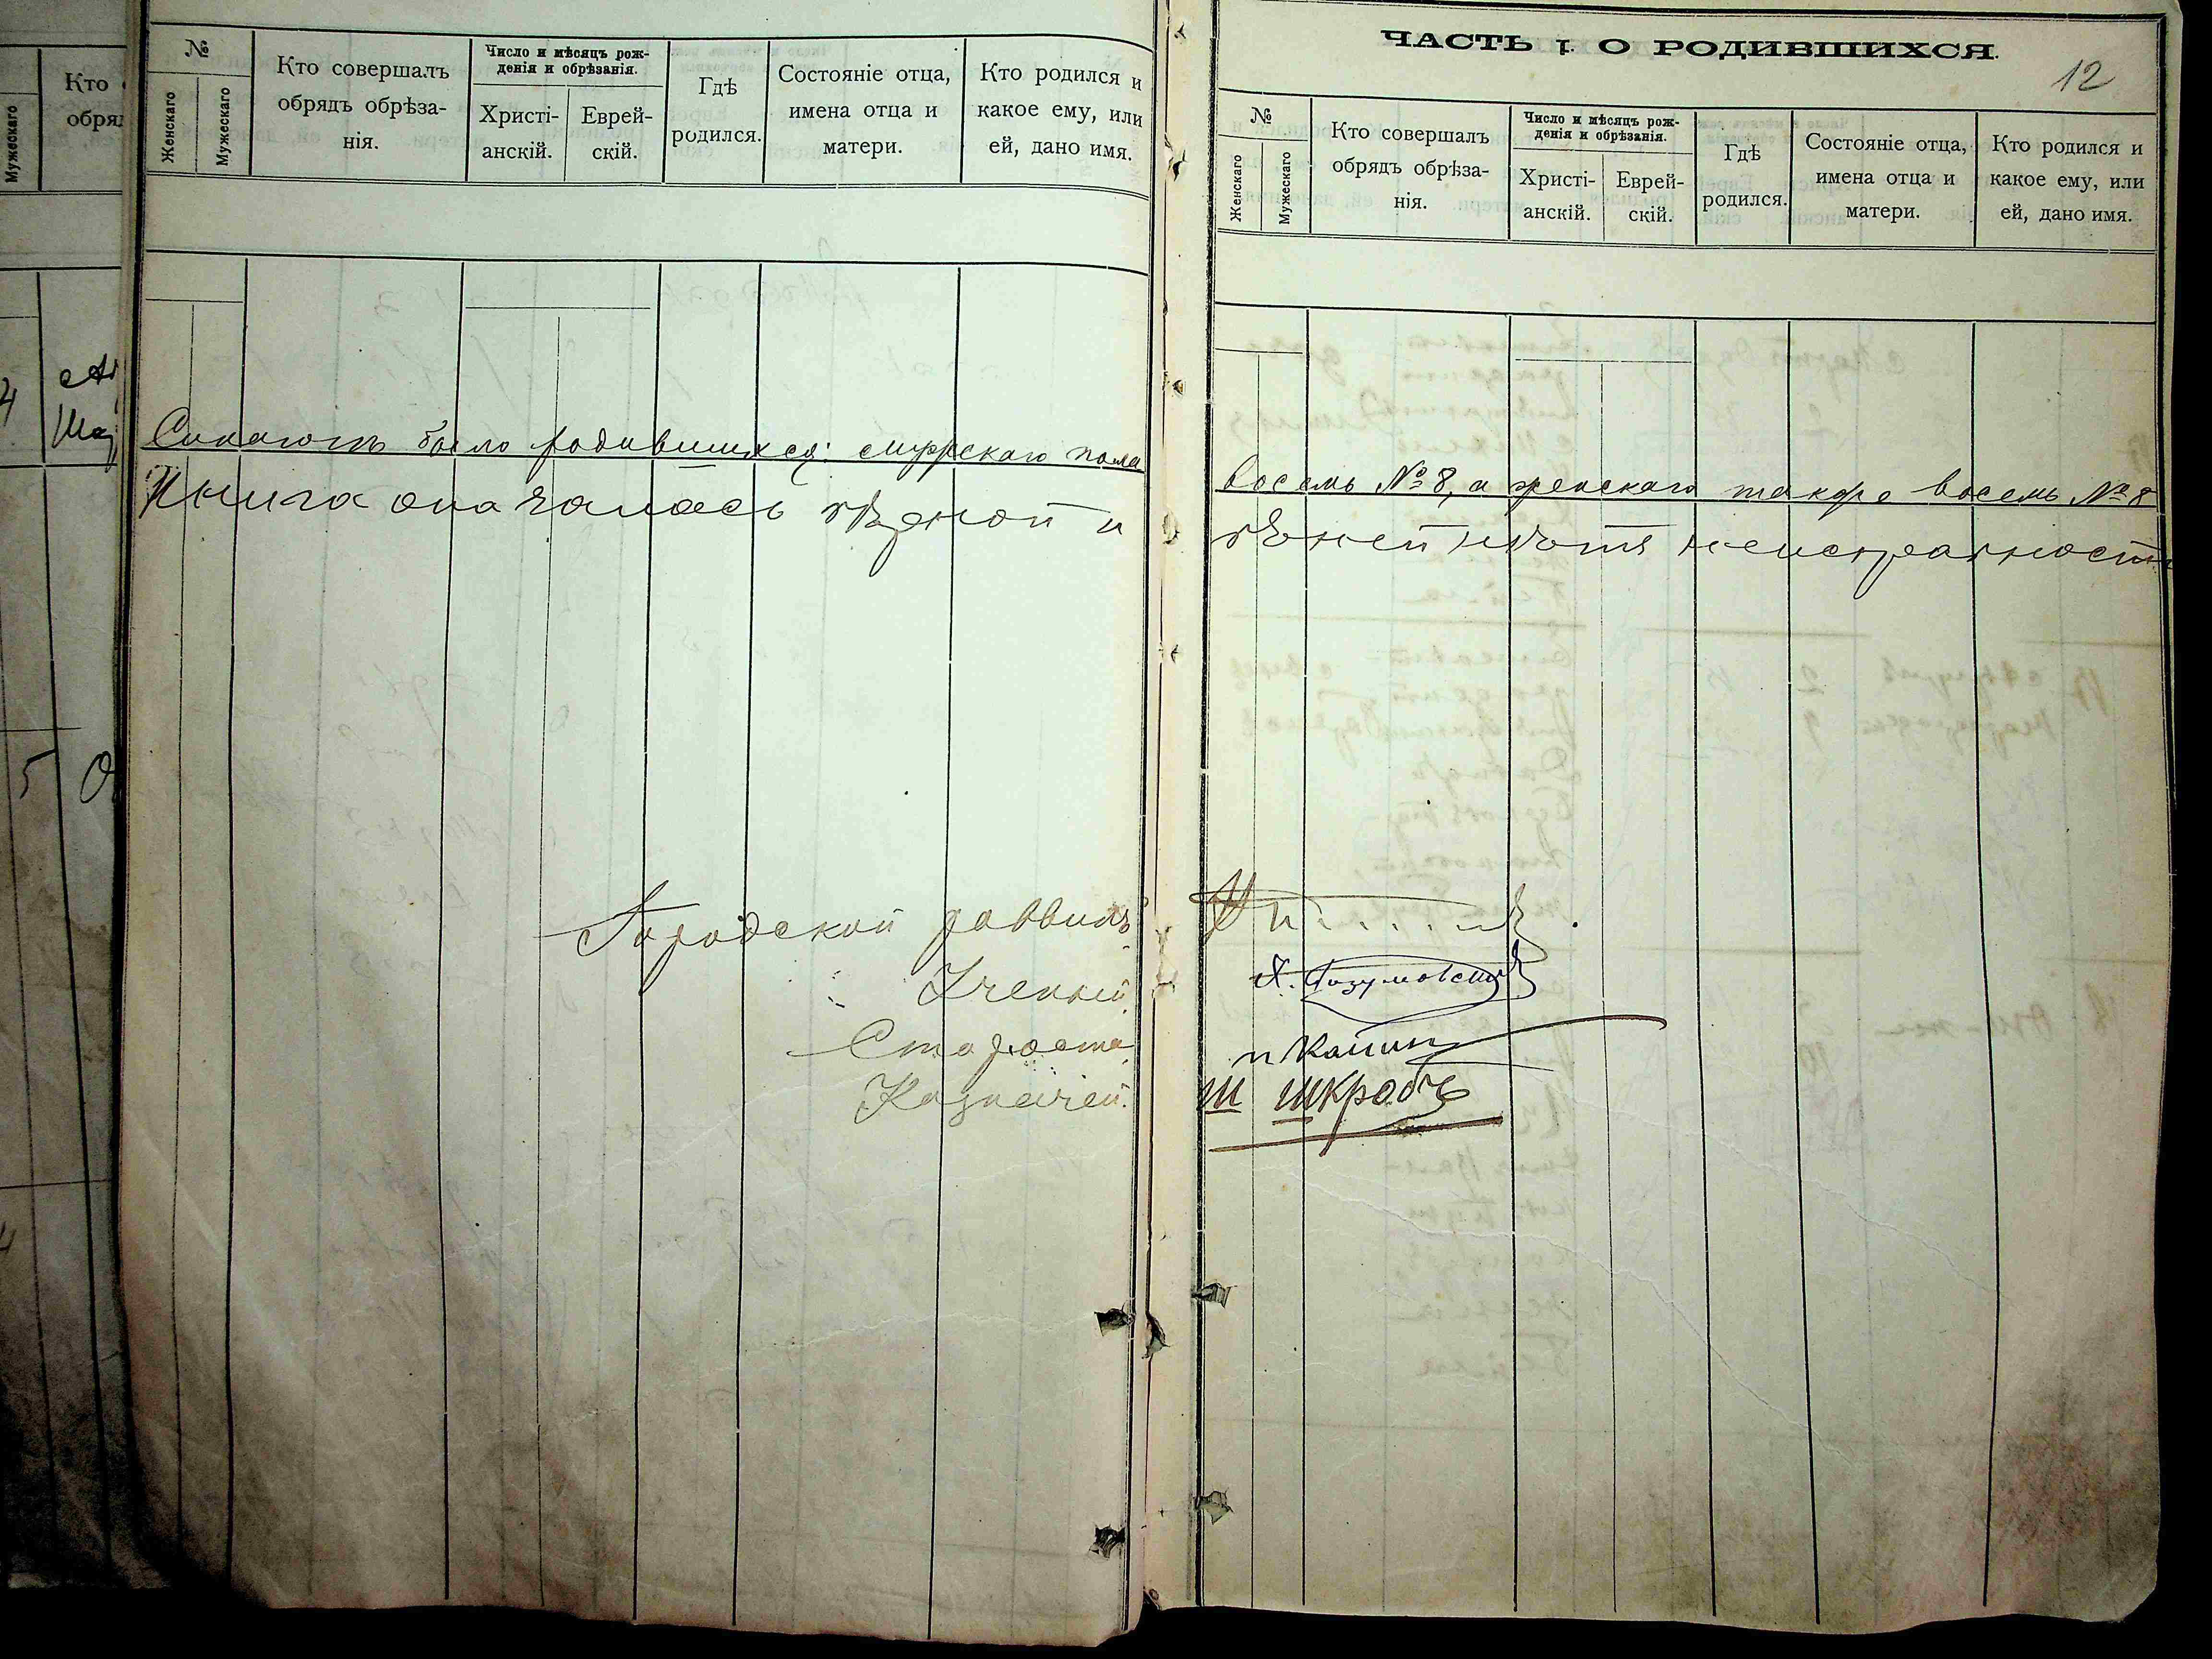 Мужескаго
Кто
обря
4
Ша
5
№
Женскаго
Мужескаго
Кто совершалъ
обрядъ обрѣза-
нія.
Число и мѣсяцъ рож-
денія и обрѣзанія.
Христі-
анскій.
Еврей-
скій.
Гдѣ
родился.
Состояніе отца,
имена отца и
матери.
Кто родился и
какое ему, или
ей, дано имя.
было родившихся: мужскаго пола
Книга оказалась вѣрной и
Городской раввинъ
Ученый
Староста
Казначей
ЧАСТЬ I. О РОДИВШИХСЯ.
12
№
Женскаго
Мужескаго
Кто совершалъ
обрядъ обрѣза-
нія.
Число и мѣсяцъ рож-
денія и обрѣзанія.
Христі-
анскій.
Еврей-
скій.
Гдѣ
родился.
Состояніе отца,
имена отца и
матери.
Кто родился и
какое ему, или
ей, дано имя.
восемь № 8, а женскаго также восемь № 8
въ ней нѣтъ неисправност
Разумовскій
Ш Шкробъ